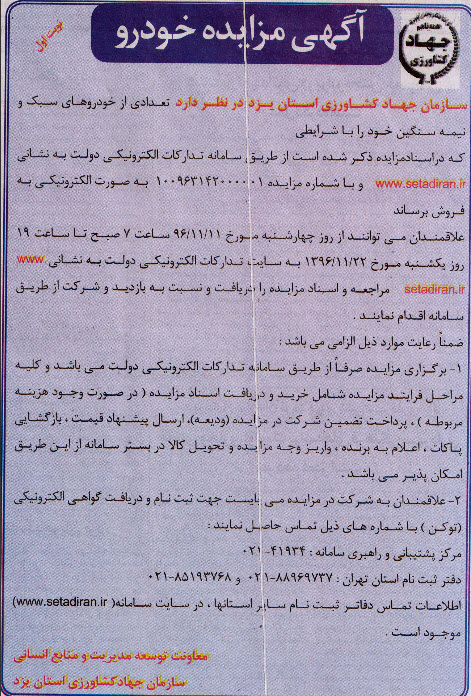 آگهی مزایده خودرو
نوبت اول
جهاد
کشاورزی
سازمان جهاد کشاورزی استان یزد در نظر دارد تعدادی از خودروهای سبک و
نیمه سنگین خود را با شرایطی
که دراسنادمزایده ذکر شده است از طریق سامانه تدارکات الکترونیکی دولت به نشانی
www.setadiran.ir و با شماره مزایده ۱۰۰۹۶۳۱۴۲۰۰۰۰۰۱ به صورت الکترونیکی به
فروش برساند
علاقمندان می توانند از روز چهارشنبه مورخ ۹۶/۱۱/۱۱ ساعت ۷ صبح تا ساعت ۱۹
روز یکشنبه مورخ ۱۳۹۶/۱۱/۲۲ به سایت تدارکات الکترونیکی دولت به نشانی www.
setadiran.ir مراجعه و اسناد مزایده را دریافت و نسبت به بازدید و شرکت از طریق
سامانه اقدام نمایند .
ضمناً رعایت موارد ذیل الزامی می باشد :
۱- برگزاری مزایده صرفاً از طریق سامانه تدارکات الکترونیکی دولت می باشد و کلیه
مراحل فرایند مزایده شامل خرید و دریافت اسناد مزایده ( در صورت وجود هزینه
مربوطه ) ، پرداخت تضمین شرکت در مزایده (ودیعه)، ارسال پیشنهاد قیمت ، بازگشایی
پاکات ، اعلام به برنده ، واریز وجه مزایده و تحویل کالا در بستر سامانه از این طریق
امکان پذیر می باشد .
۲- علاقمندان به شرکت در مزایده می بایست جهت ثبت نام و دریافت گواهی الکترونیکی
(توکن ) با شماره های ذیل تماس حاصل نمایند :
مرکز پشتیبانی و راهبری سامانه : ۴۱۹۳۴-۰۲۱
دفتر ثبت نام استان تهران : ۸۸۹۶۹۷۳۷-۰۲۱ و ۸۵۱۹۳۷۶۸-۰۲۱
اطلاعات تماس دفاتر ثبت نام سایر استانها ، در سایت سامانه( www.setadiran.ir)
موجود است .
معاونت توسعه مدیریت و منابع انسانی
سازمان جهادکشاورزی استان یزد